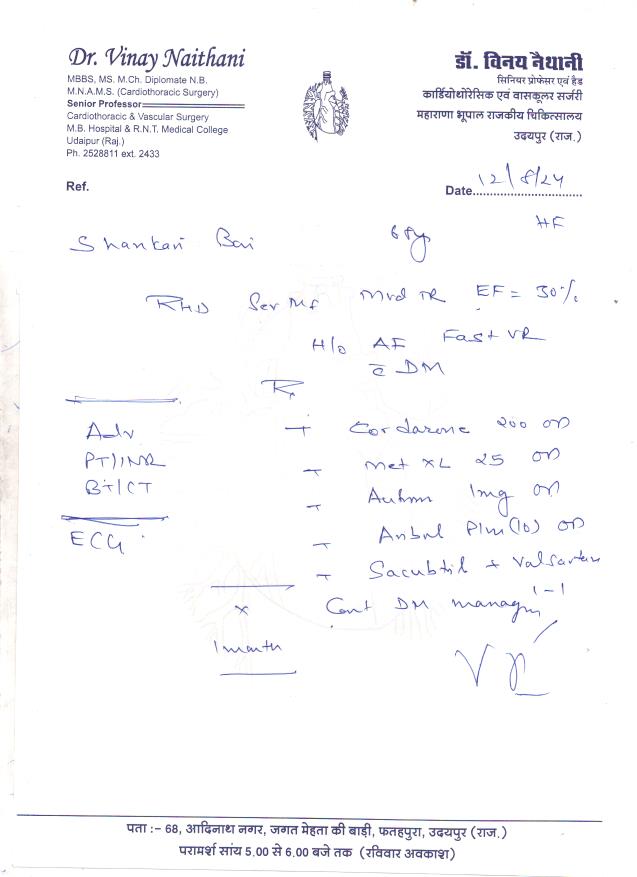 Dr. Vinay Naithani
MBBS, MS. M.Ch. Diplomate N.B.
M.N.A.M.S. (Cardiothoracic Surgery)
Senior Professor
Cardiothoracic & Vascular Surgery
M.B. Hospital & R.N.T. Medical College
Udaipur (Raj.)
Ph. 2528811 ext. 2433
डॉ. विनय नैथानी
सिनियर प्रोफेसर एवं हैड
कार्डियोथोरेसिक एवं वासकूलर सर्जरी
महाराणा भूपाल राजकीय चिकित्सालय
उदयपुर (राज.)
Ref.
Date 12/8/24
HF
Shankari Bai
RHD Sev Mod TR EF = 30%
H/o AF Fast VR
c̄ DM
Rx
Adv
PT/INR
BT/CT
ECG
T Cordarone 200 OD
T Met XL 25 OD
T 1mg OD
T (10) OD
T Sacubitril + Valsartan
1-1
Cont DM managm
x
1 month
पता :– 68, आदिनाथ नगर, जगत मेहता की बाड़ी, फतहपुरा, उदयपुर (राज.)
परामर्श सांय 5.00 से 6.00 बजे तक (रविवार अवकाश)